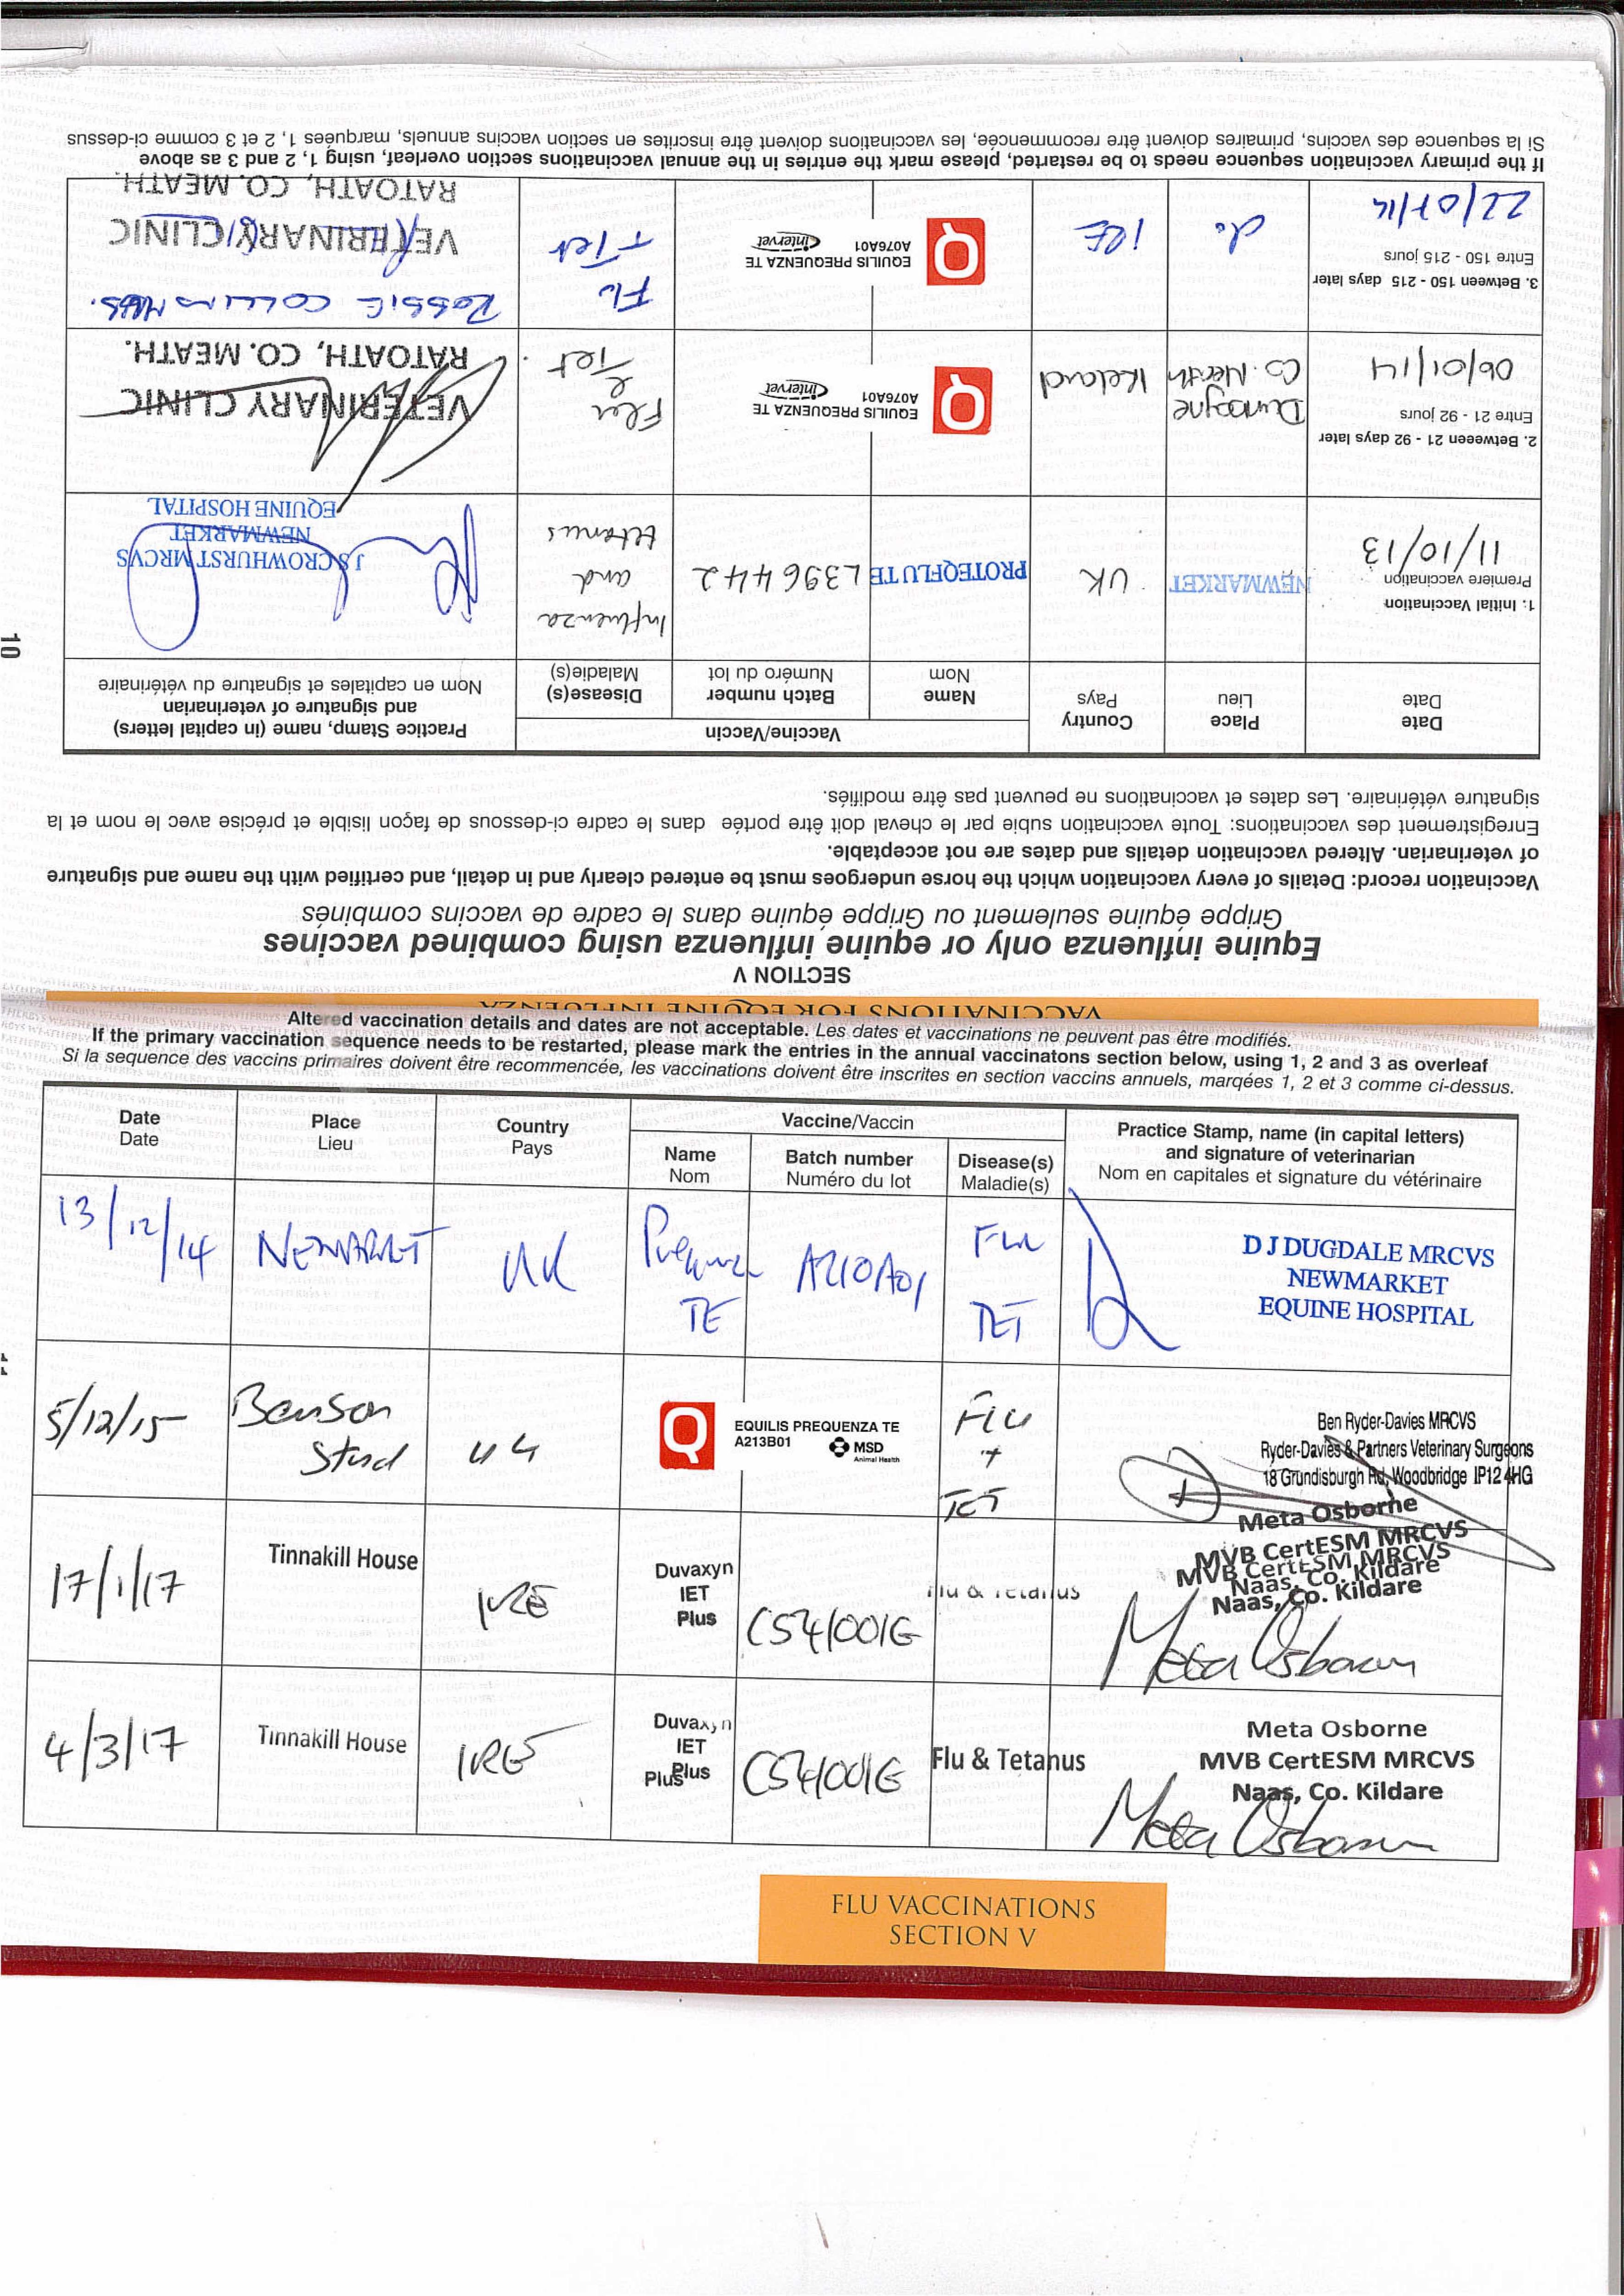 10
VACCINATIONS FOR EQUINE INFLUENZA
SECTION V
Equine influenza only or equine influenza using combined vaccines
Grippe équine seulement ou Grippe équine dans le cadre de vaccins combinés
Vaccination record: Details of every vaccination which the horse undergoes must be entered clearly and in detail, and certified with the name and signature
of veterinarian. Altered vaccination details and dates are not acceptable.
Enregistrement des vaccinations: Toute vaccination subie par le cheval doit être portée dans le cadre ci-dessous de façon lisible et précise avec le nom et la
signature vétérinaire. Les dates et vaccinations ne peuvent pas être modifiés.
Date
Date
Place
Lieu
Country
Pays
Vaccine/Vaccin
Name
Nom
Batch number
Numéro du lot
Disease(s)
Maladie(s)
Practice Stamp, name (in capital letters)
and signature of veterinarian
Nom en capitales et signature du vétérinaire
1. Initial Vaccination
Premiere vaccination
11/10/13
NEWMARKET
UK
PROTEQFLU TE
L396442
Influenza
and
tetanus
J S CROWHURST MRCVS
NEWMARKET
EQUINE HOSPITAL
2. Betweeen 21 - 92 days later
Entre 21 - 92 jours
06/01/14
Dunboyne
Co. Meath
Ireland
EQUILIS PREQUENZA TE
A076A01
Intervet
Flu
&
Tet
VETERINARY CLINIC
RATOATH, CO. MEATH.
3. Between 150 - 215 days later
Entre 150 - 215 jours
22/07/14
do
IRE
EQUILIS PREQUENZA TE
A076A01
Intervet
Flu
+ Tet
COLLINS
VETERINARY CLINIC
RATOATH, CO. MEATH.
If the primary vaccination sequence needs to be restarted, please mark the entries in the annual vaccinations section overleaf, using 1, 2 and 3 as above
Si la sequence des vaccins, primaires doivent être recommencée, les vaccinations doivent être inscrites en section vaccins annuels, marquées 1, 2 et 3 comme ci-dessus
Altered vaccination details and dates are not acceptable. Les dates et vaccinations ne peuvent pas être modifiés.
If the primary vaccination sequence needs to be restarted, please mark the entries in the annual vaccinatons section below, using 1, 2 and 3 as overleaf
Si la sequence des vaccins primaires doivent être recommencée, les vaccinations doivent être inscrites en section vaccins annuels, marqées 1, 2 et 3 comme ci-dessus.
Date
Date
Place
Lieu
Country
Pays
Vaccine/Vaccin
Name
Nom
Batch number
Numéro du lot
Disease(s)
Maladie(s)
Practice Stamp, name (in capital letters)
and signature of veterinarian
Nom en capitales et signature du vétérinaire
13/12/14
NEWMARKET
UK
Prequenza
TE
A210A01
FLU
TET
D J DUGDALE MRCVS
NEWMARKET
EQUINE HOSPITAL
5/12/15
Benson
Stud
UK
EQUILIS PREQUENZA TE
A213B01
MSD
Animal Health
FLU
+
TET
Ben Ryder-Davies MRCVS
Ryder-Davies & Partners Veterinary Surgeons
18 Grundisburgh Rd, Woodbridge IP12 4HG
17/1/17
Tinnakill House
IRE
Duvaxyn
IET
Plus
C54/001G
Flu & Tetanus
Meta Osborne
MVB CertESM MRCVS
MVB CertESM MRCVS
Naas, Co. Kildare
Naas, Co. Kildare
Meta Osborne
4/3/17
Tinnakill House
IRE
Duvaxyn
IET
Plus
Plus
C54/001G
Flu & Tetanus
Meta Osborne
MVB CertESM MRCVS
Naas, Co. Kildare
Meta Osborne
FLU VACCINATIONS
SECTION V